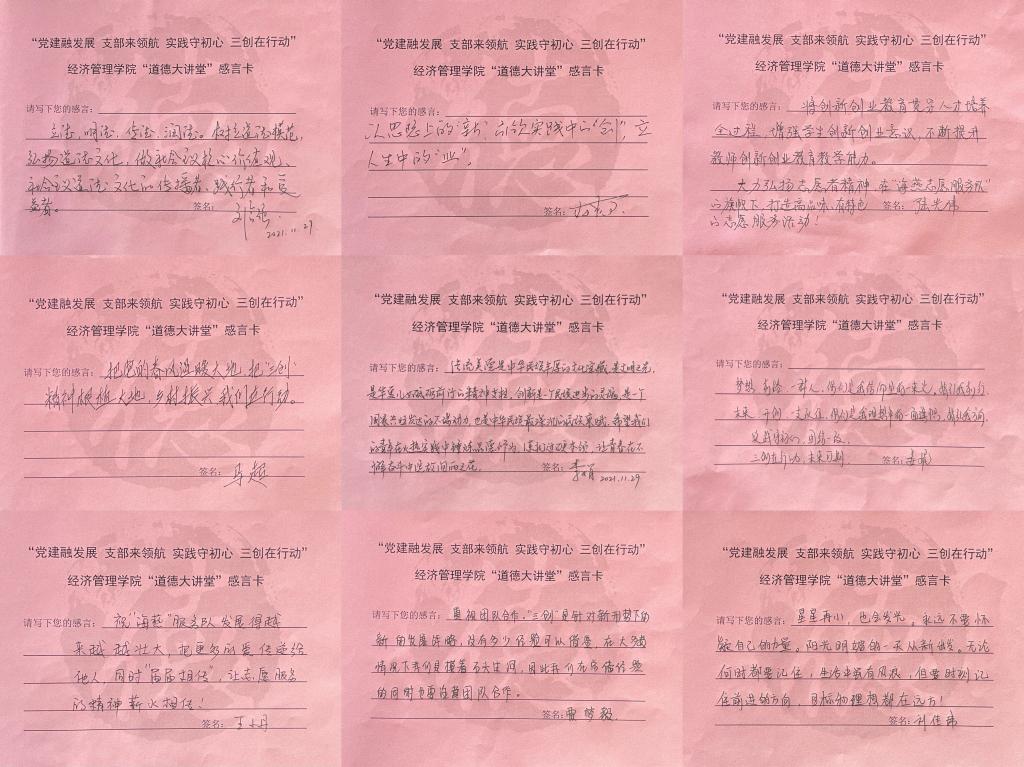 “党建融发展 支部来领航 实践守初心 三创在行动”
经济管理学院“道德大讲堂”感言卡
请写下您的感言：
立德，明德，传德，润德。在打造道德模范，
弘扬道德文化，做社会主义核心价值观、
社会主义道德文化的传播者、践行者和受
益者。
签名：
2021.11.29
“党建融发展 支部来领航 实践守初心 三创在行动”
经济管理学院“道德大讲堂”感言卡
请写下您的感言：
以思想上的“新”，品位实践中的“创”，立
人生中的“业”。
签名：
“党建融发展 支部来领航 实践守初心 三创在行动”
经济管理学院“道德大讲堂”感言卡
请写下您的感言： 将创新创业教育贯穿人才培养
全过程，增强学生创新创业意识，不断提升
教师创新创业教育教学能力。
大力弘扬志愿者精神，在“海燕志愿服务队”
的旗帜下，打造高品味、有特色
的志愿服务活动！
签名： 陈光伟
“党建融发展 支部来领航 实践守初心 三创在行动”
经济管理学院“道德大讲堂”感言卡
请写下您的感言： 把党的春风温暖大地，把“三创”
精神根植大地，乡村振兴我们在行动。
签名： 马超
“党建融发展 支部来领航 实践守初心 三创在行动”
经济管理学院“道德大讲堂”感言卡
请写下您的感言： 传统美德是中华民族丰厚的文化宝藏，是文明之花，
是华夏儿女砥砺前行的精神支撑，创新是一个民族进步的灵魂，是一个
国家兴旺发达的不竭动力，也是中华民族最深沉的民族禀赋，希望我们
的青年在火热实践中锤炼品德修为，
签名： 李娟 2021.11.29
“党建融发展 支部来领航 实践守初心 三创在行动”
经济管理学院“道德大讲堂”感言卡
请写下您的感言：
团结一致，
三创在行动，未来可期
签名：
“党建融发展 支部来领航 实践守初心 三创在行动”
经济管理学院“道德大讲堂”感言卡
请写下您的感言： 祝“海燕”服务队发展得越
来越越壮大，把更多的爱传递给
他人，同时“届届相传”，让志愿服务
的精神薪火相传！
签名： 王丹
“党建融发展 支部来领航 实践守初心 三创在行动”
经济管理学院“道德大讲堂”感言卡
请写下您的感言： 重视团队合作，“三创”是针对新形势下的
新的发展战略，没有多少经验可以借鉴，在大多数
情况下我们是摸着石头过河，因此我们在总结经验
的同时也要注重团队合作。
签名： 贾梦毅
“党建融发展 支部来领航 实践守初心 三创在行动”
经济管理学院“道德大讲堂”感言卡
请写下您的感言： 星星再小，也会发光。永远不要怀
疑自己的力量。阳光明媚的一天从新出发。无论
何时都要记住，生活中虽有风浪，但要时刻记
住前进的方向，目标和理想都在远方！
签名： 刘佳琦